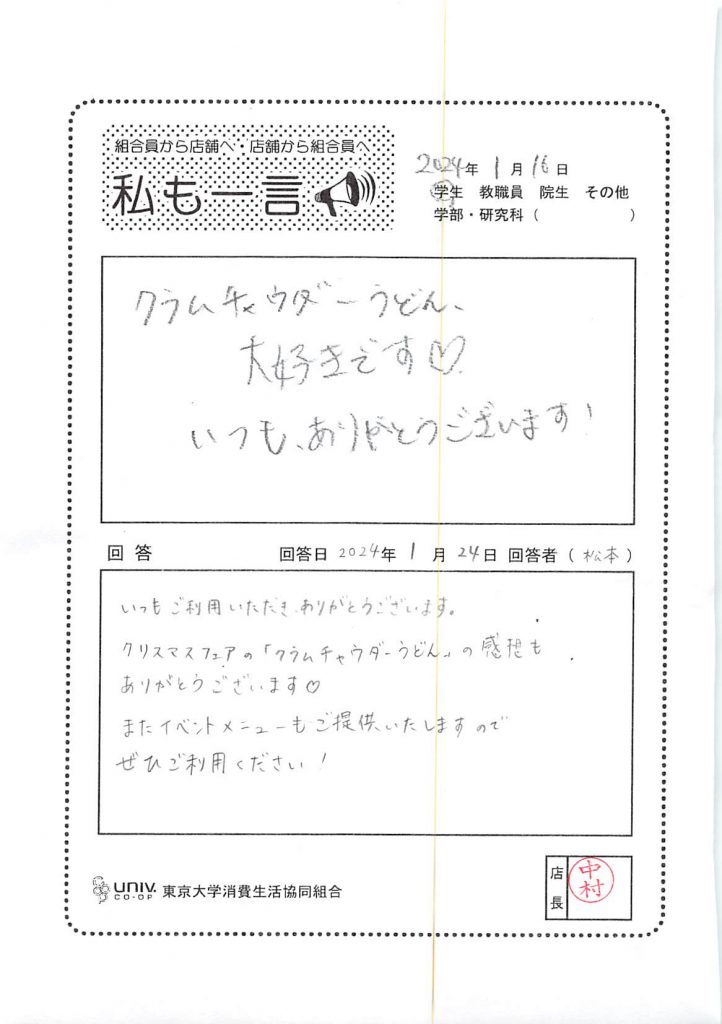 組合員から店舗へ・店舗から組合員へ
私も一言
2024年 1月 16日
学生 教職員 院生 その他
学部・研究科（ ）
クラムチャウダーうどん、
大好きです♡
いつも、ありがとうございます！
回答 回答日 2024年 1月 24日 回答者（松本）
いつもご利用いただき、ありがとうございます。
クリスマスフェアの「クラムチャウダーうどん」の感想も
ありがとうございます♡
またイベントメニューもご提供いたしますので
ぜひご利用ください！
UNIV. CO-OP 東京大学消費生活協同組合
店長 中村